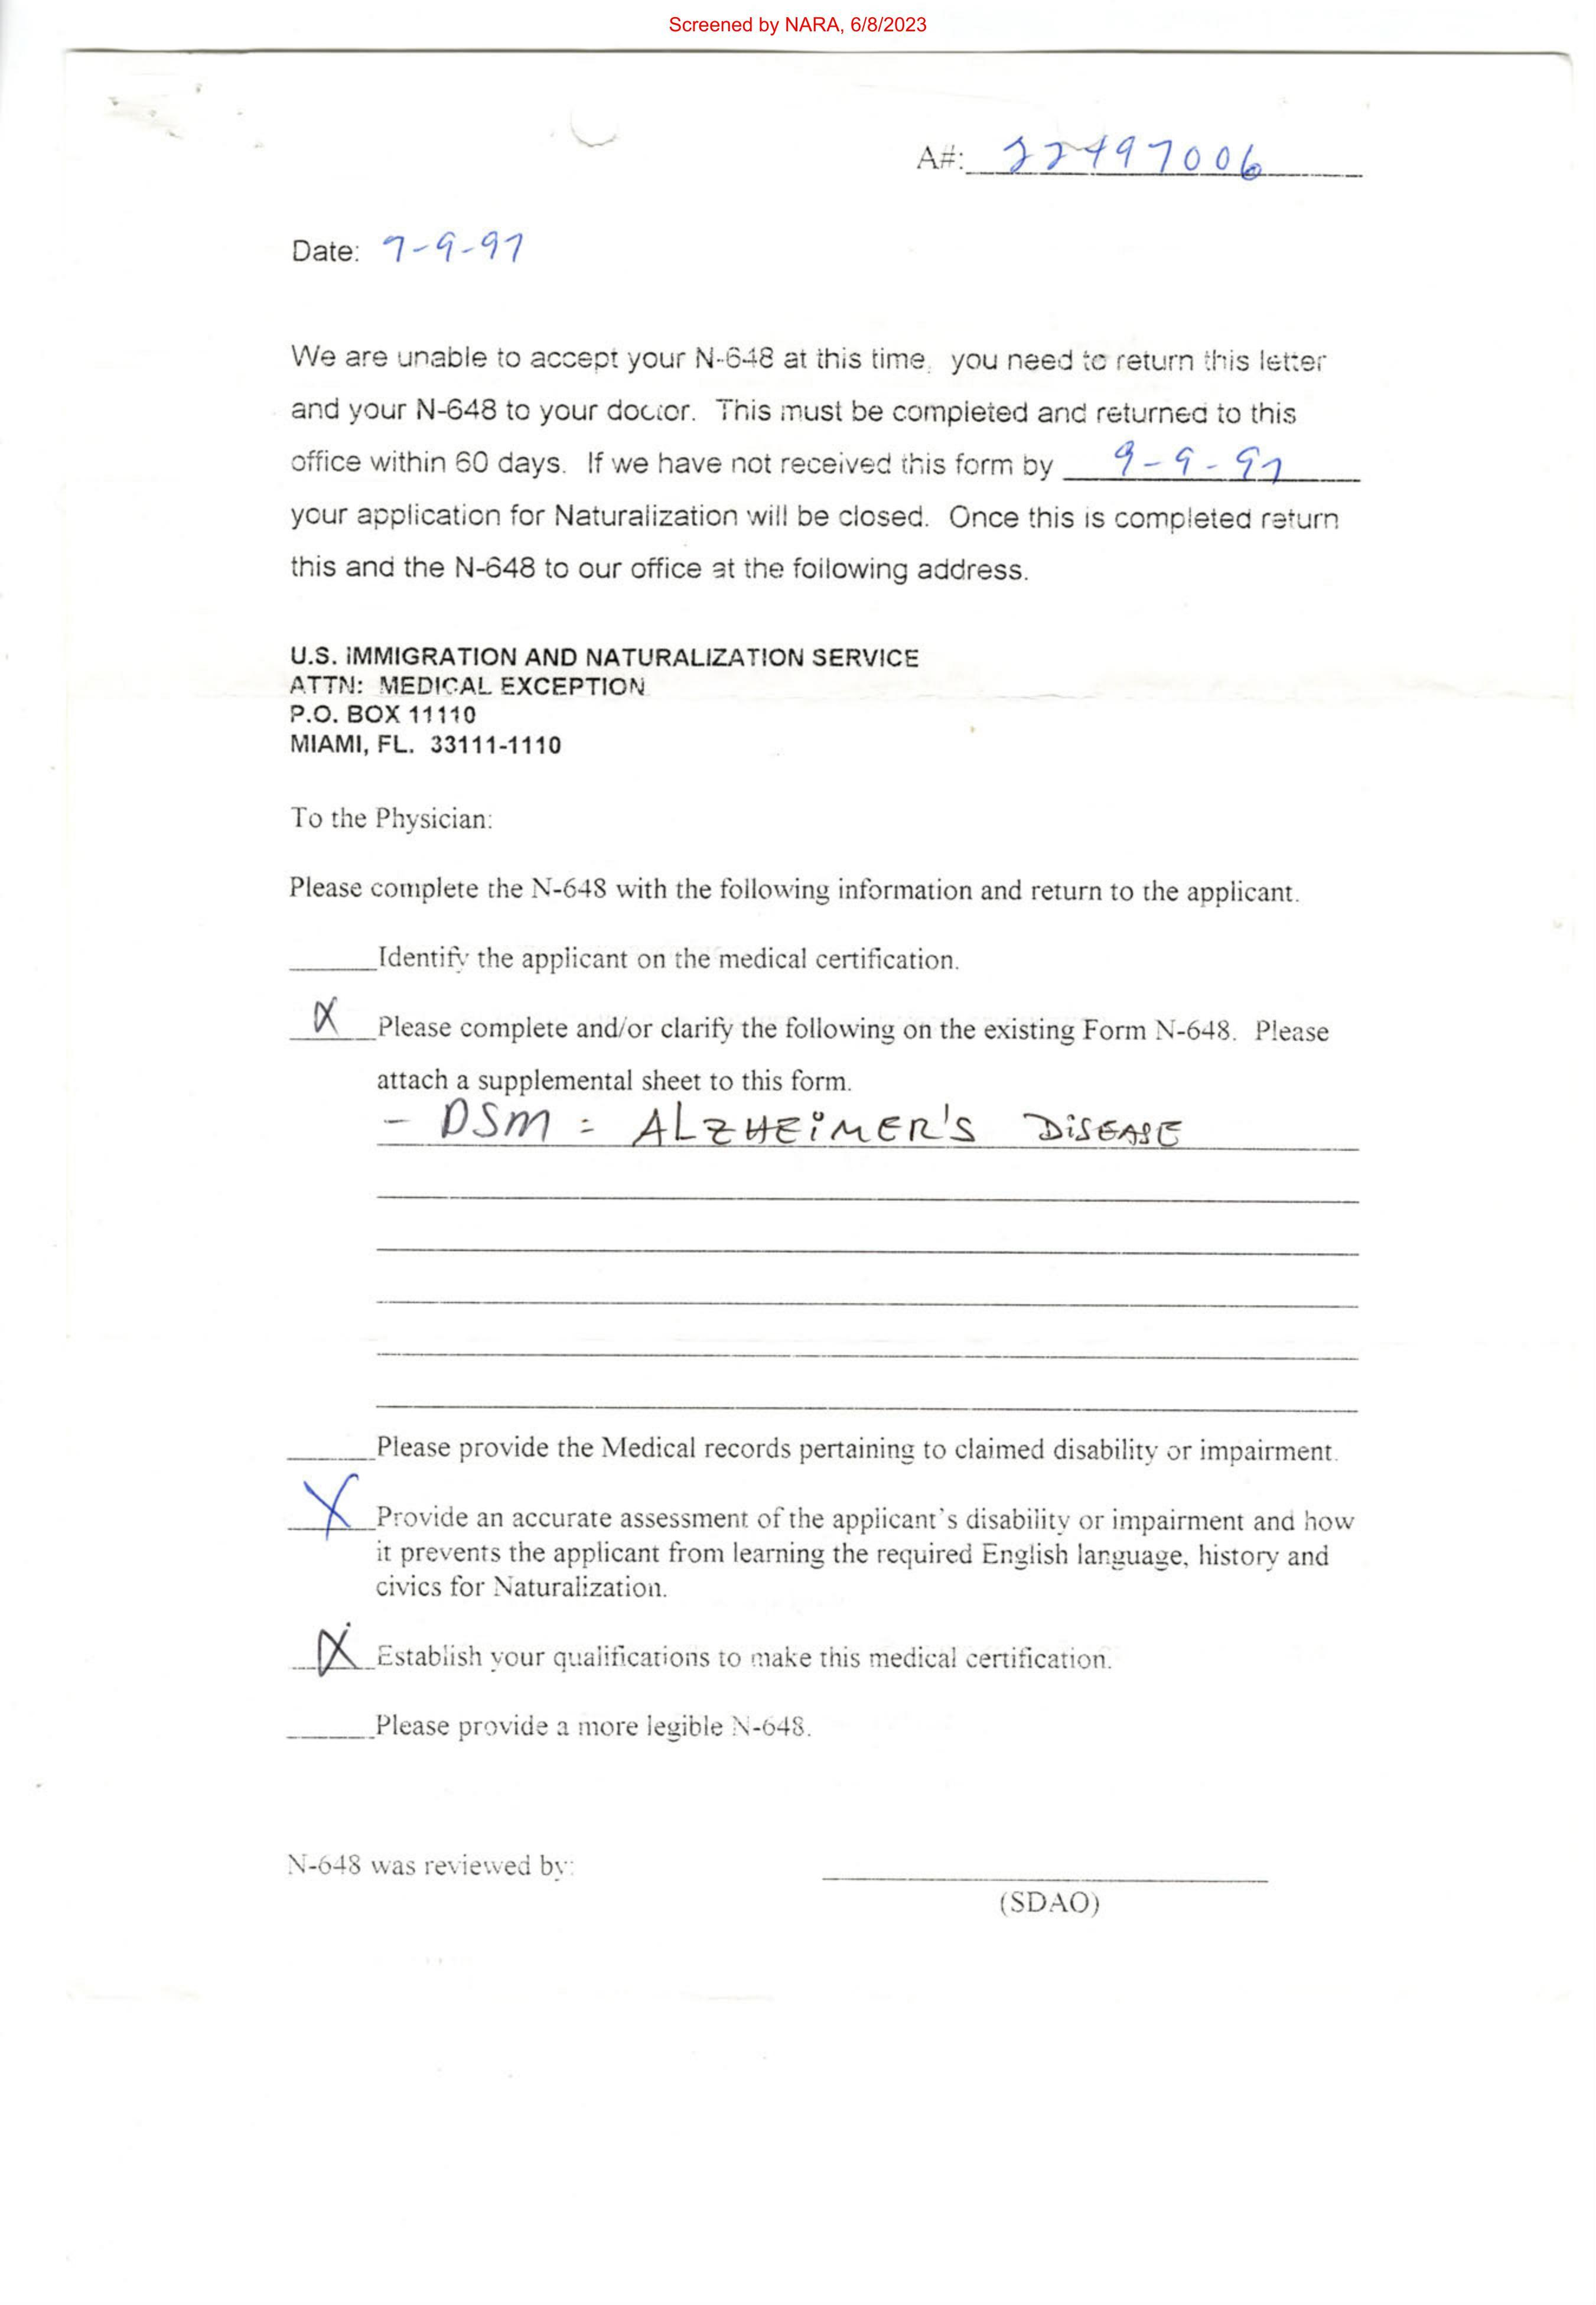 Screened by NARA, 6/8/2023
A#: 22497006
Date: 7-9-97
We are unable to accept your N-648 at this time, you need to return this letter
and your N-648 to your doctor. This must be completed and returned to this
office within 60 days. If we have not received this form by 9-9-97
your application for Naturalization will be closed. Once this is completed return
this and the N-648 to our office at the following address.
U.S. IMMIGRATION AND NATURALIZATION SERVICE
ATTN: MEDICAL EXCEPTION
P.O. BOX 11110
MIAMI, FL. 33111-1110
To the Physician:
Please complete the N-648 with the following information and return to the applicant.
Identify the applicant on the medical certification.
X Please complete and/or clarify the following on the existing Form N-648. Please
attach a supplemental sheet to this form.
- DSM = ALZHEIMER'S DISEASE
Please provide the Medical records pertaining to claimed disability or impairment.
X Provide an accurate assessment of the applicant's disability or impairment and how
it prevents the applicant from learning the required English language, history and
civics for Naturalization.
X Establish your qualifications to make this medical certification.
Please provide a more legible N-648.
N-648 was reviewed by:
(SDAO)